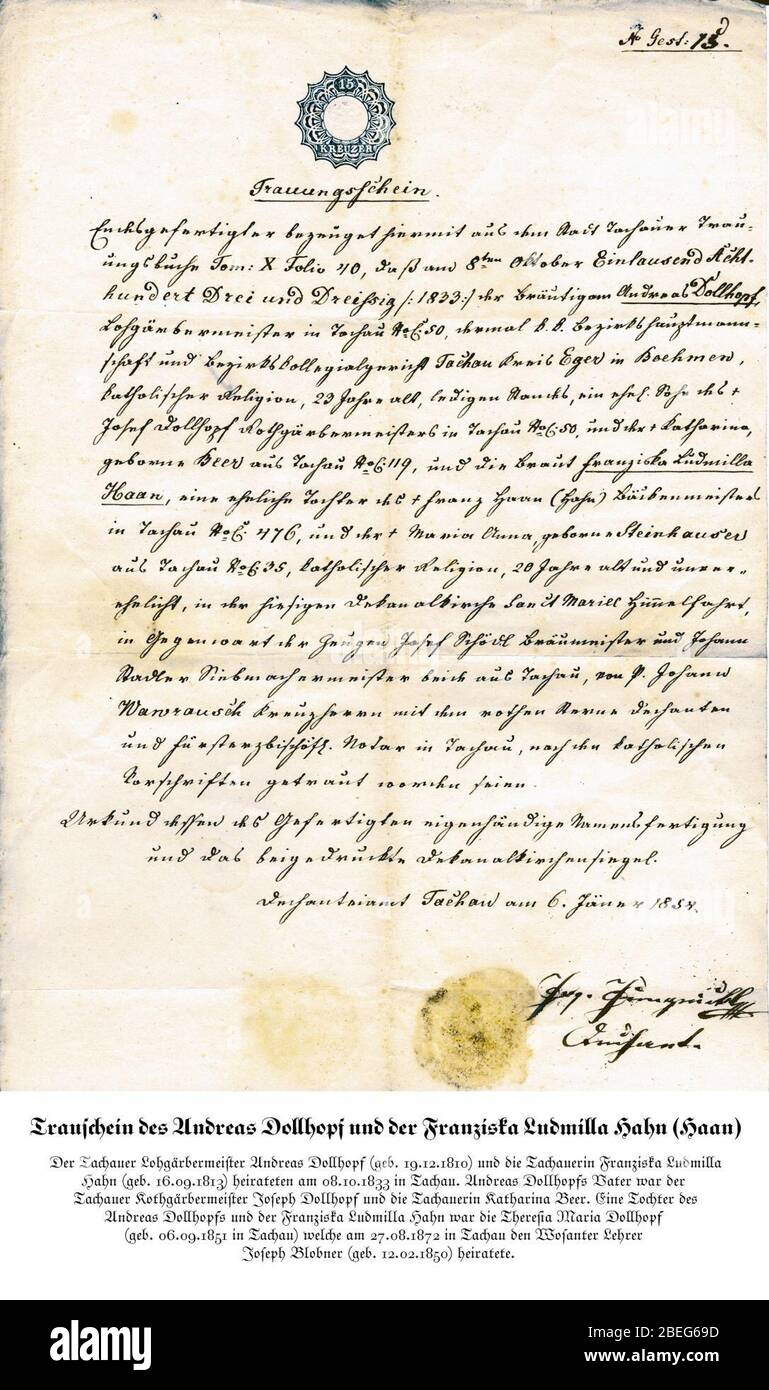 No Gest: 13.
15
KREUZER
Trauungsschein.
Endesgefertigter bezeuget hiermit aus dem Stadt Tachauer Trau-
ungsbuche Tom: X Folio 40, daß am 8ten Oktober Eintausend Acht-
hundert Drei und Dreissig /: 1833:/ der Bräutigam Andreas Dollhopf,
Lohgärbermeister in Tachau No C. 50, dermal k. k. Bezirkshauptmann-
schaft und Bezirkskollegialgericht Tachau Kreis Eger in Boehmen,
katholischer Religion, 23 Jahre alt, ledigen Standes, ein ehel. Sohn des †
Josef Dollhopf Rothgärbermeisters in Tachau No C. 50, und der † Katharina,
geborne Beer aus Tachau No C. 119, und die Braut Franziska Ludmilla
Haan, eine eheliche Tochter des † Franz Haan (Hahn) Bäckenmeisters
in Tachau No C. 476, und der † Maria Anna, geborne Steinhauser
aus Tachau No C. 35, katholischer Religion, 20 Jahre alt und unver-
ehelicht, in der hiesigen Dekanalkirche Sanct Mariae Himmelfahrt,
in Gegenwart der Zeugen Josef Schödl Bräumeister und Johann
Stadler Siebmachermeister beide aus Tachau, von P. Johann
Wawrausch Kreuzherrn mit dem rothen Sterne Dechanten
und fürsterzbischöfl. Notar in Tachau, nach den katholischen
Vorschriften getraut worden seien.
Urkund dessen des Gefertigten eigenhändige Namensfertigung
und das beigedruckte Dekanalkirchensiegel.
Dechanteiamt Tachau am 6. Jäner
Dechant.
Trauschein des Andreas Dollhopf und der Franziska Ludmilla Hahn (Haan)
Der Tachauer Lohgärbermeister Andreas Dollhopf (geb. 19.12.1810) und die Tachauerin Franziska Ludmilla
Hahn (geb. 16.09.1813) heirateten am 08.10.1833 in Tachau. Andreas Dollhopfs Vater war der
Tachauer Rothgärbermeister Joseph Dollhopf und die Tachauerin Katharina Beer. Eine Tochter des
Andreas Dollhopfs und der Franziska Ludmilla Hahn war die Theresia Maria Dollhopf
(geb. 06.09.1851 in Tachau) welche am 27.08.1872 in Tachau den Wosanter Lehrer
Joseph Blobner (geb. 12.02.1850) heiratete.
alamy
Image ID: 2BEG69D
www.alamy.com